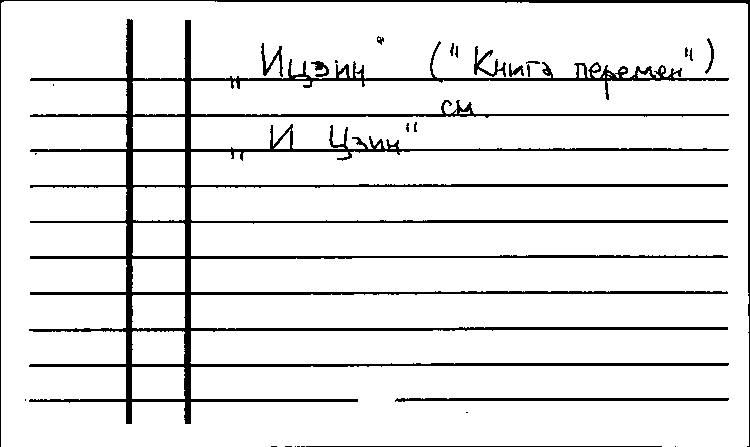 „Ицзин“ ("Книга перемен")
см.
„И Цзин“